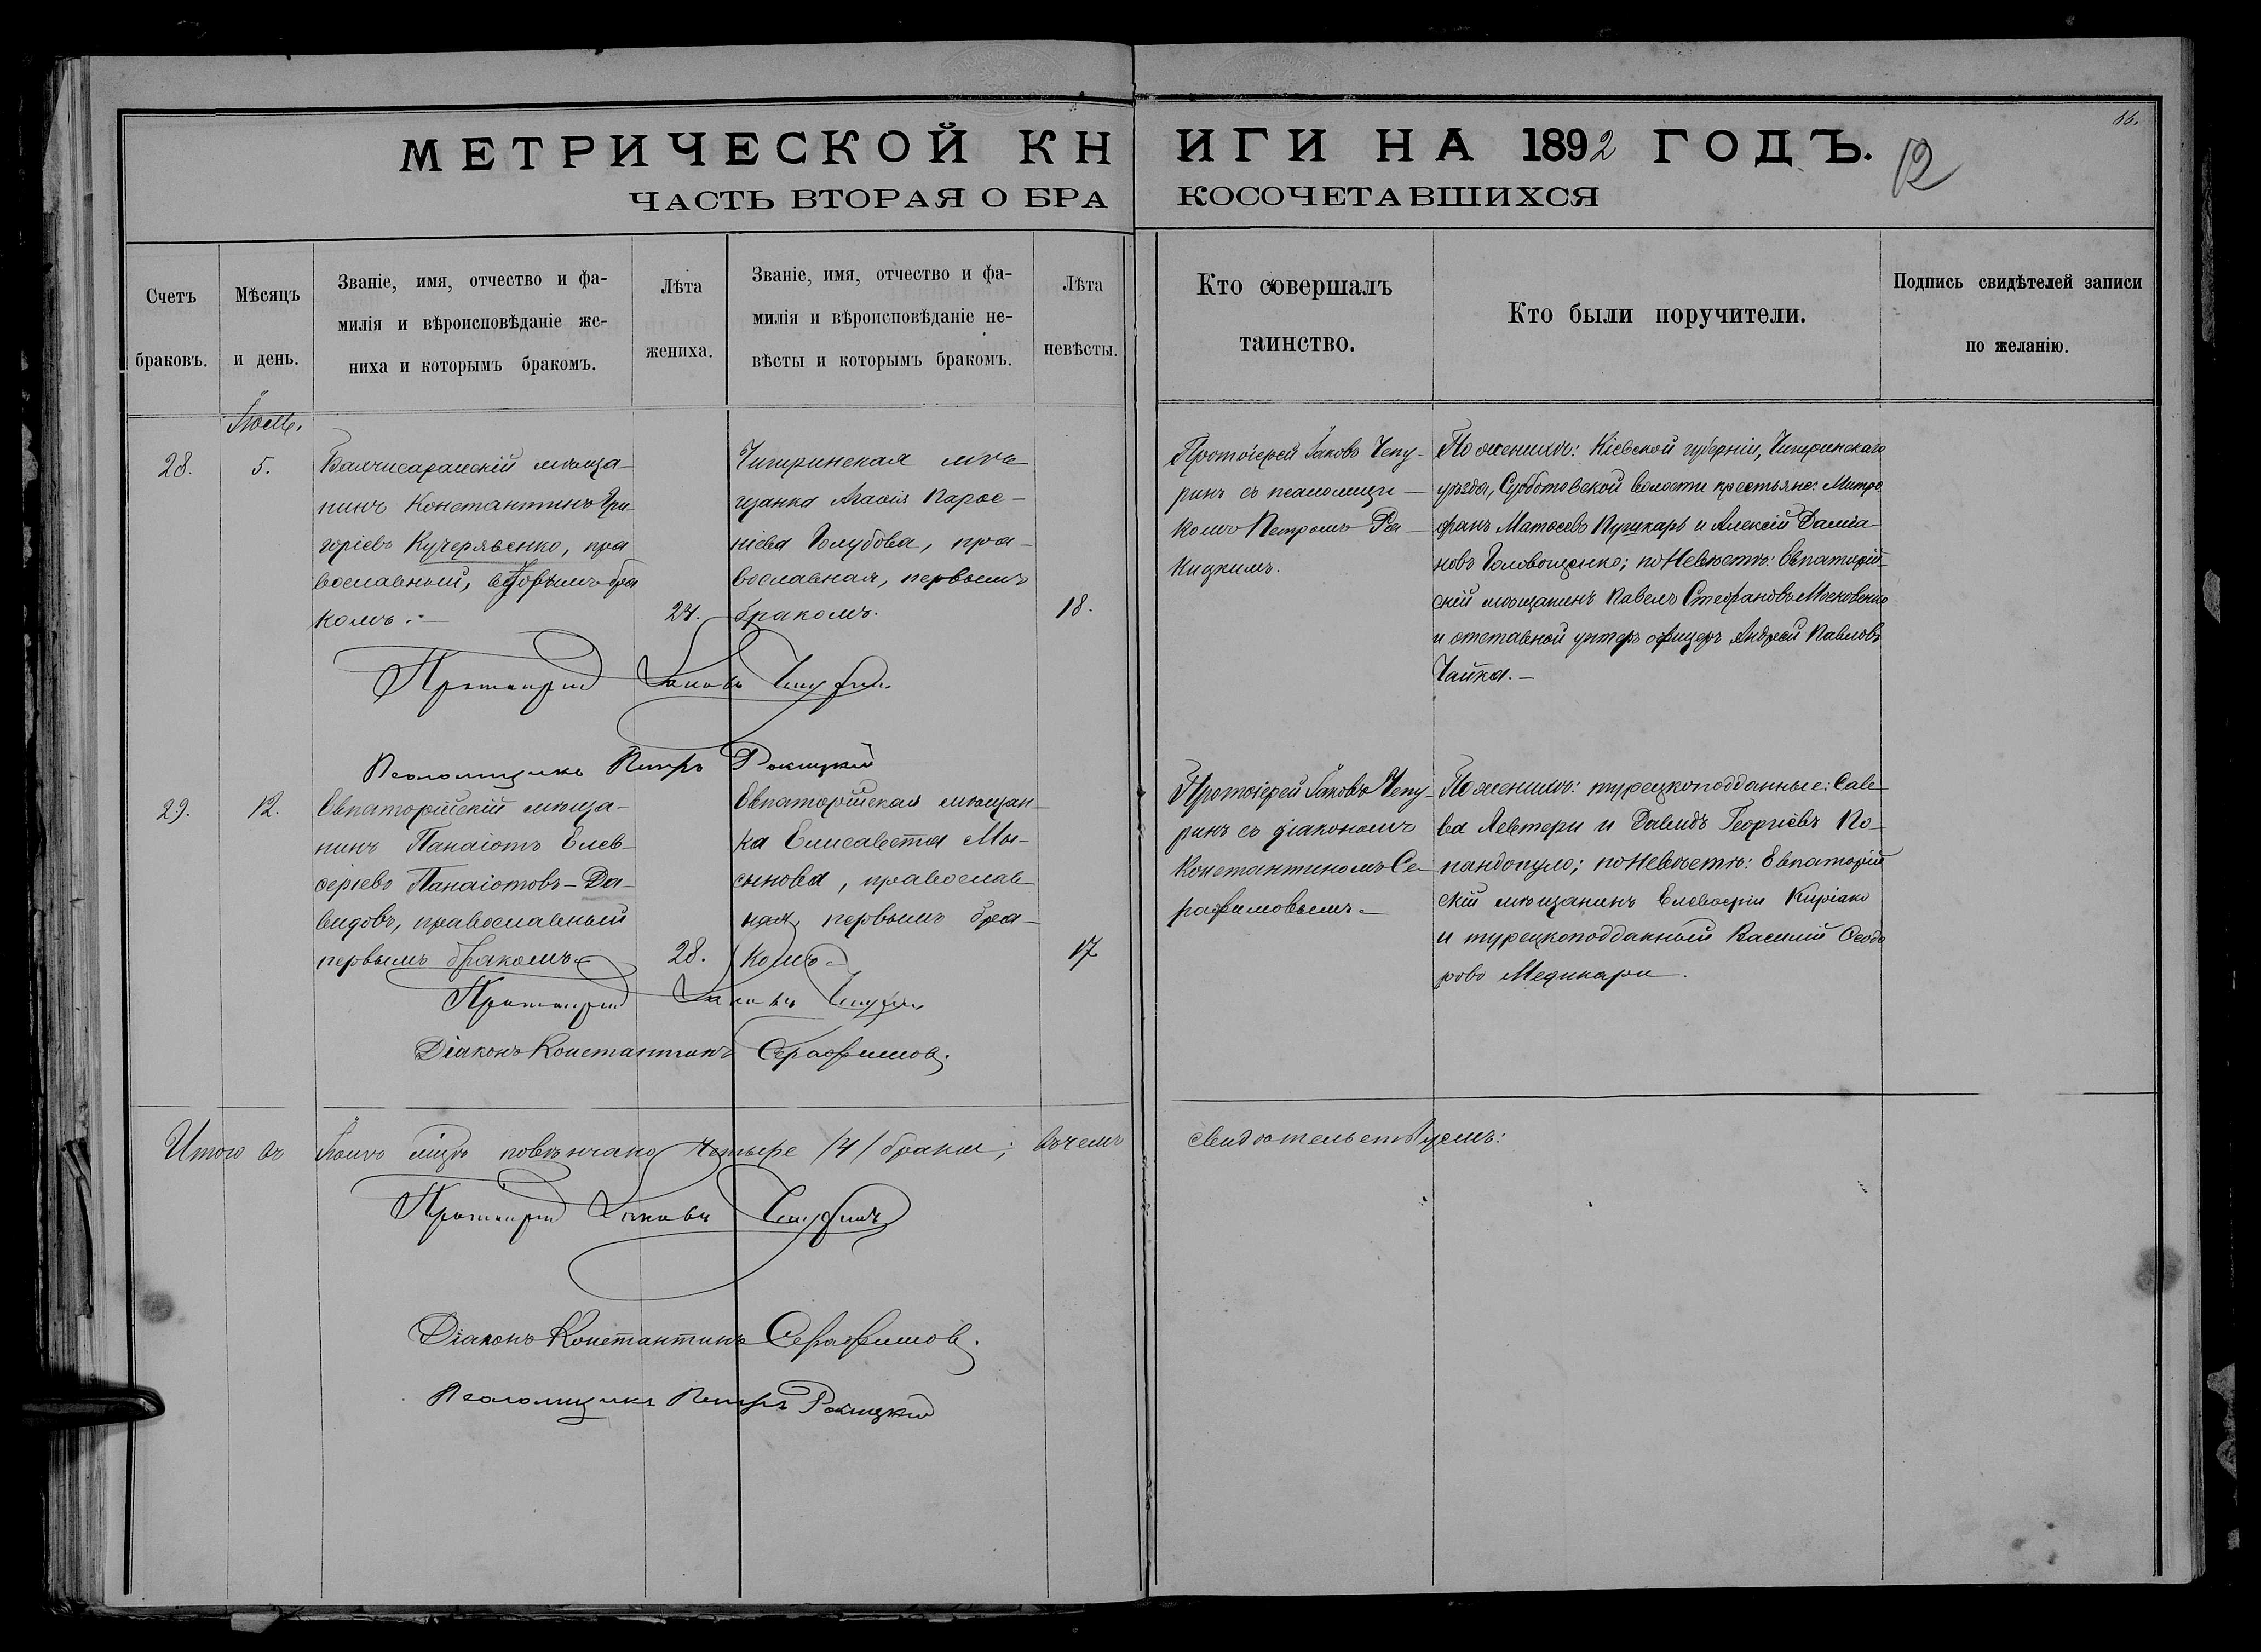 66.
МЕТРИЧЕСКОЙ КНИГИ НА 1892 ГОДЪ.
12
ЧАСТЬ ВТОРАЯ О БРАКОСОЧЕТАВШИХСЯ
Счетъ
браковъ.
Мѣсяцъ
и день.
Званіе, имя, отчество и фа-
милія и вѣроисповѣданіе же-
ниха и которымъ бракомъ.
Лѣта
жениха.
Званіе, имя, отчество и фа-
милія и вѣроисповѣданіе не-
вѣсты и которымъ бракомъ.
Лѣта
невѣсты.
Кто совершалъ
таинство.
Кто были поручители.
Подпись свидѣтелей записи
по желанію.
28.
5.
Бахчисарайскій мѣща-
нинъ Константинъ Гри-
горіевъ Кучерявенко, пра
вославный, вторымъ бра
комъ.-
24.
Чигиринская мѣ
щанка Агафія Парѳе-
ніева Голубова, пра-
вославная, первымъ
бракомъ.
18.
Протоіерей Іаковъ Чепу-
ринъ съ псаломщи-
комъ Петромъ Ра-
кицкимъ.
По женихѣ: Кіевской губерніи, Чигиринскаго
уѣзда, Субботовской волости крестьяне: Митро
фанъ Матѳеевъ Пушкарь и Алексій Даміа-
новъ Головощенко; по невѣстѣ: Евпаторій-
скій мѣщанинъ Павелъ Стефановъ Московенко
и отставной унтеръ офицеръ Андрей Павловъ
Чайка.-
Протоіерей Іаковъ Чепуринъ
Псаломщикъ Петръ Ракицкій
29.
12.
Евпаторійскій мѣща-
нинъ Панаіотъ Елев-
ѳеріевъ Панаіотовъ-Да-
видовъ, православный
первымъ бракомъ
28.
Евпаторійская мѣщан-
ка Елисавета Мы-
сынова, православ
ная, первымъ бра-
комъ-
17
Протоіерей Іаковъ Чепу-
ринъ съ діакономъ
Константиномъ Се-
рафимовымъ-
По женихѣ: турецкоподданные: Савв
ва Левтери и Давидъ Георгіевъ По-
пандопуло; по невѣстѣ: Евпаторій
скій мѣщанинъ Елевѳерій Киріако
и турецкоподданный Василій Ѳеодо
ровъ Медикари.
Протоіерей Іаковъ Чепуринъ
Діаконъ Константинъ Серафимовъ.
Итого въ Іюлѣ мцѣ повѣнчано четыре /4/ брака; въ чемъ свидѣтельствуемъ:
Протоіерей Іаковъ Чепуринъ
Діаконъ Константинъ Серафимовъ.
Псаломщикъ Петръ Ракицкій